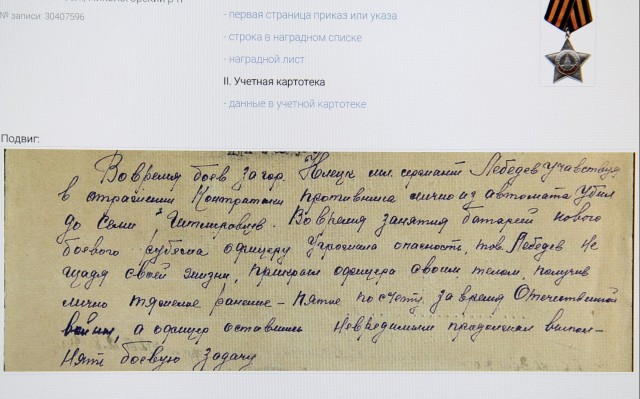 № записи: 30407596
- первая страница приказ или указа
- строка в наградном списке
- наградной лист
II. Учетная картотека
- данные в учетной картотеке
Подвиг:
Во время боев за гор. мл. сержант Лебедев участвуя
в отражении контратаки противника лично из автомата убил
до семи гитлеровцев. Во время занятия батареей нового
боевого рубежа офицеру угрожала опасность, тов. Лебедев не
щадя своей жизни, прикрыл офицера своим телом, получив
лично тяжелое ранение - пятое по счету, за время Отечественной
войны, а офицер оставшись невредимым продолжал выпол-
нять боевую задачу